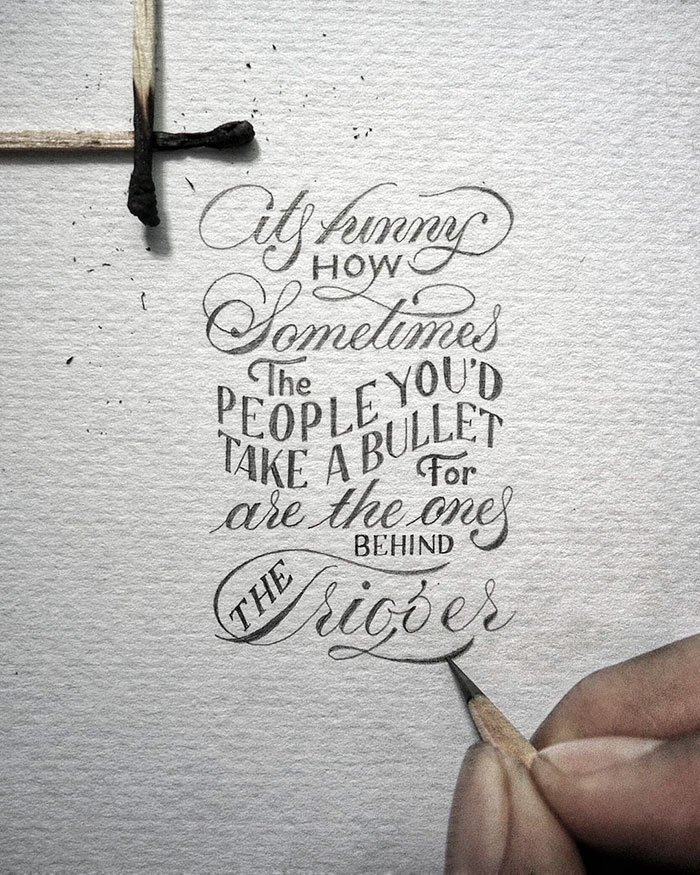 its funny
HOW
Sometimes
The
PEOPLE YOU'D
TAKE A BULLET
For
are the ones
BEHIND
THE Trigger